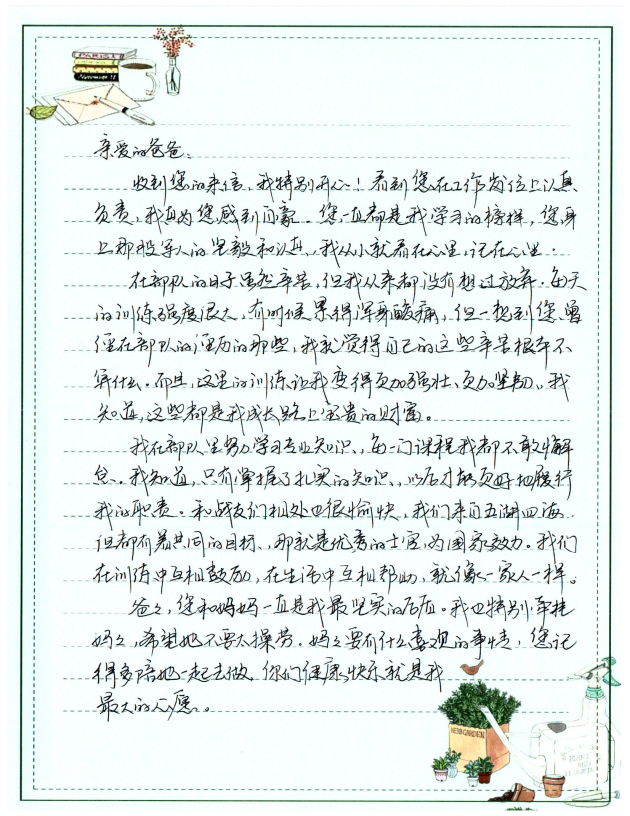 PARIS
November 11
亲爱的爸爸:
收到您的来信,我特别开心!看到您在工作岗位上认真
负责,我真为您感到自豪。您一直都是我学习的榜样,您身
上那股军人的坚毅和认真,我从小就看在心里,记在心里。
在部队的日子虽然辛苦,但我从来都没有想过放弃。每天
的训练强度很大,有时候累得浑身酸痛,但一想到您曾
经在部队的经历的那些,我就觉得自己的这些辛苦根本不
算什么。而且,这里的训练让我变得更加强壮、更加坚韧。我
知道,这些都是我成长路上宝贵的财富。
我在部队里努力学习专业知识,每一门课程我都不敢懈
怠。我知道,只有掌握了扎实的知识,以后才能更好地履行
我的职责。和战友们相处也很愉快,我们来自五湖四海
但都有着共同的目标,那就是优秀的士官,为国家效力。我们
在训练中互相鼓励,在生活中互相帮助,就像一家人一样。
爸爸,您和妈妈一直是我最坚实的后盾。我也特别牵挂
妈妈,希望她不要太操劳。妈妈要有什么喜欢的事情,您记
得多陪她一起去做。你们健康快乐就是我
最大的心愿。
HERB GARDEN
PLANT
AND